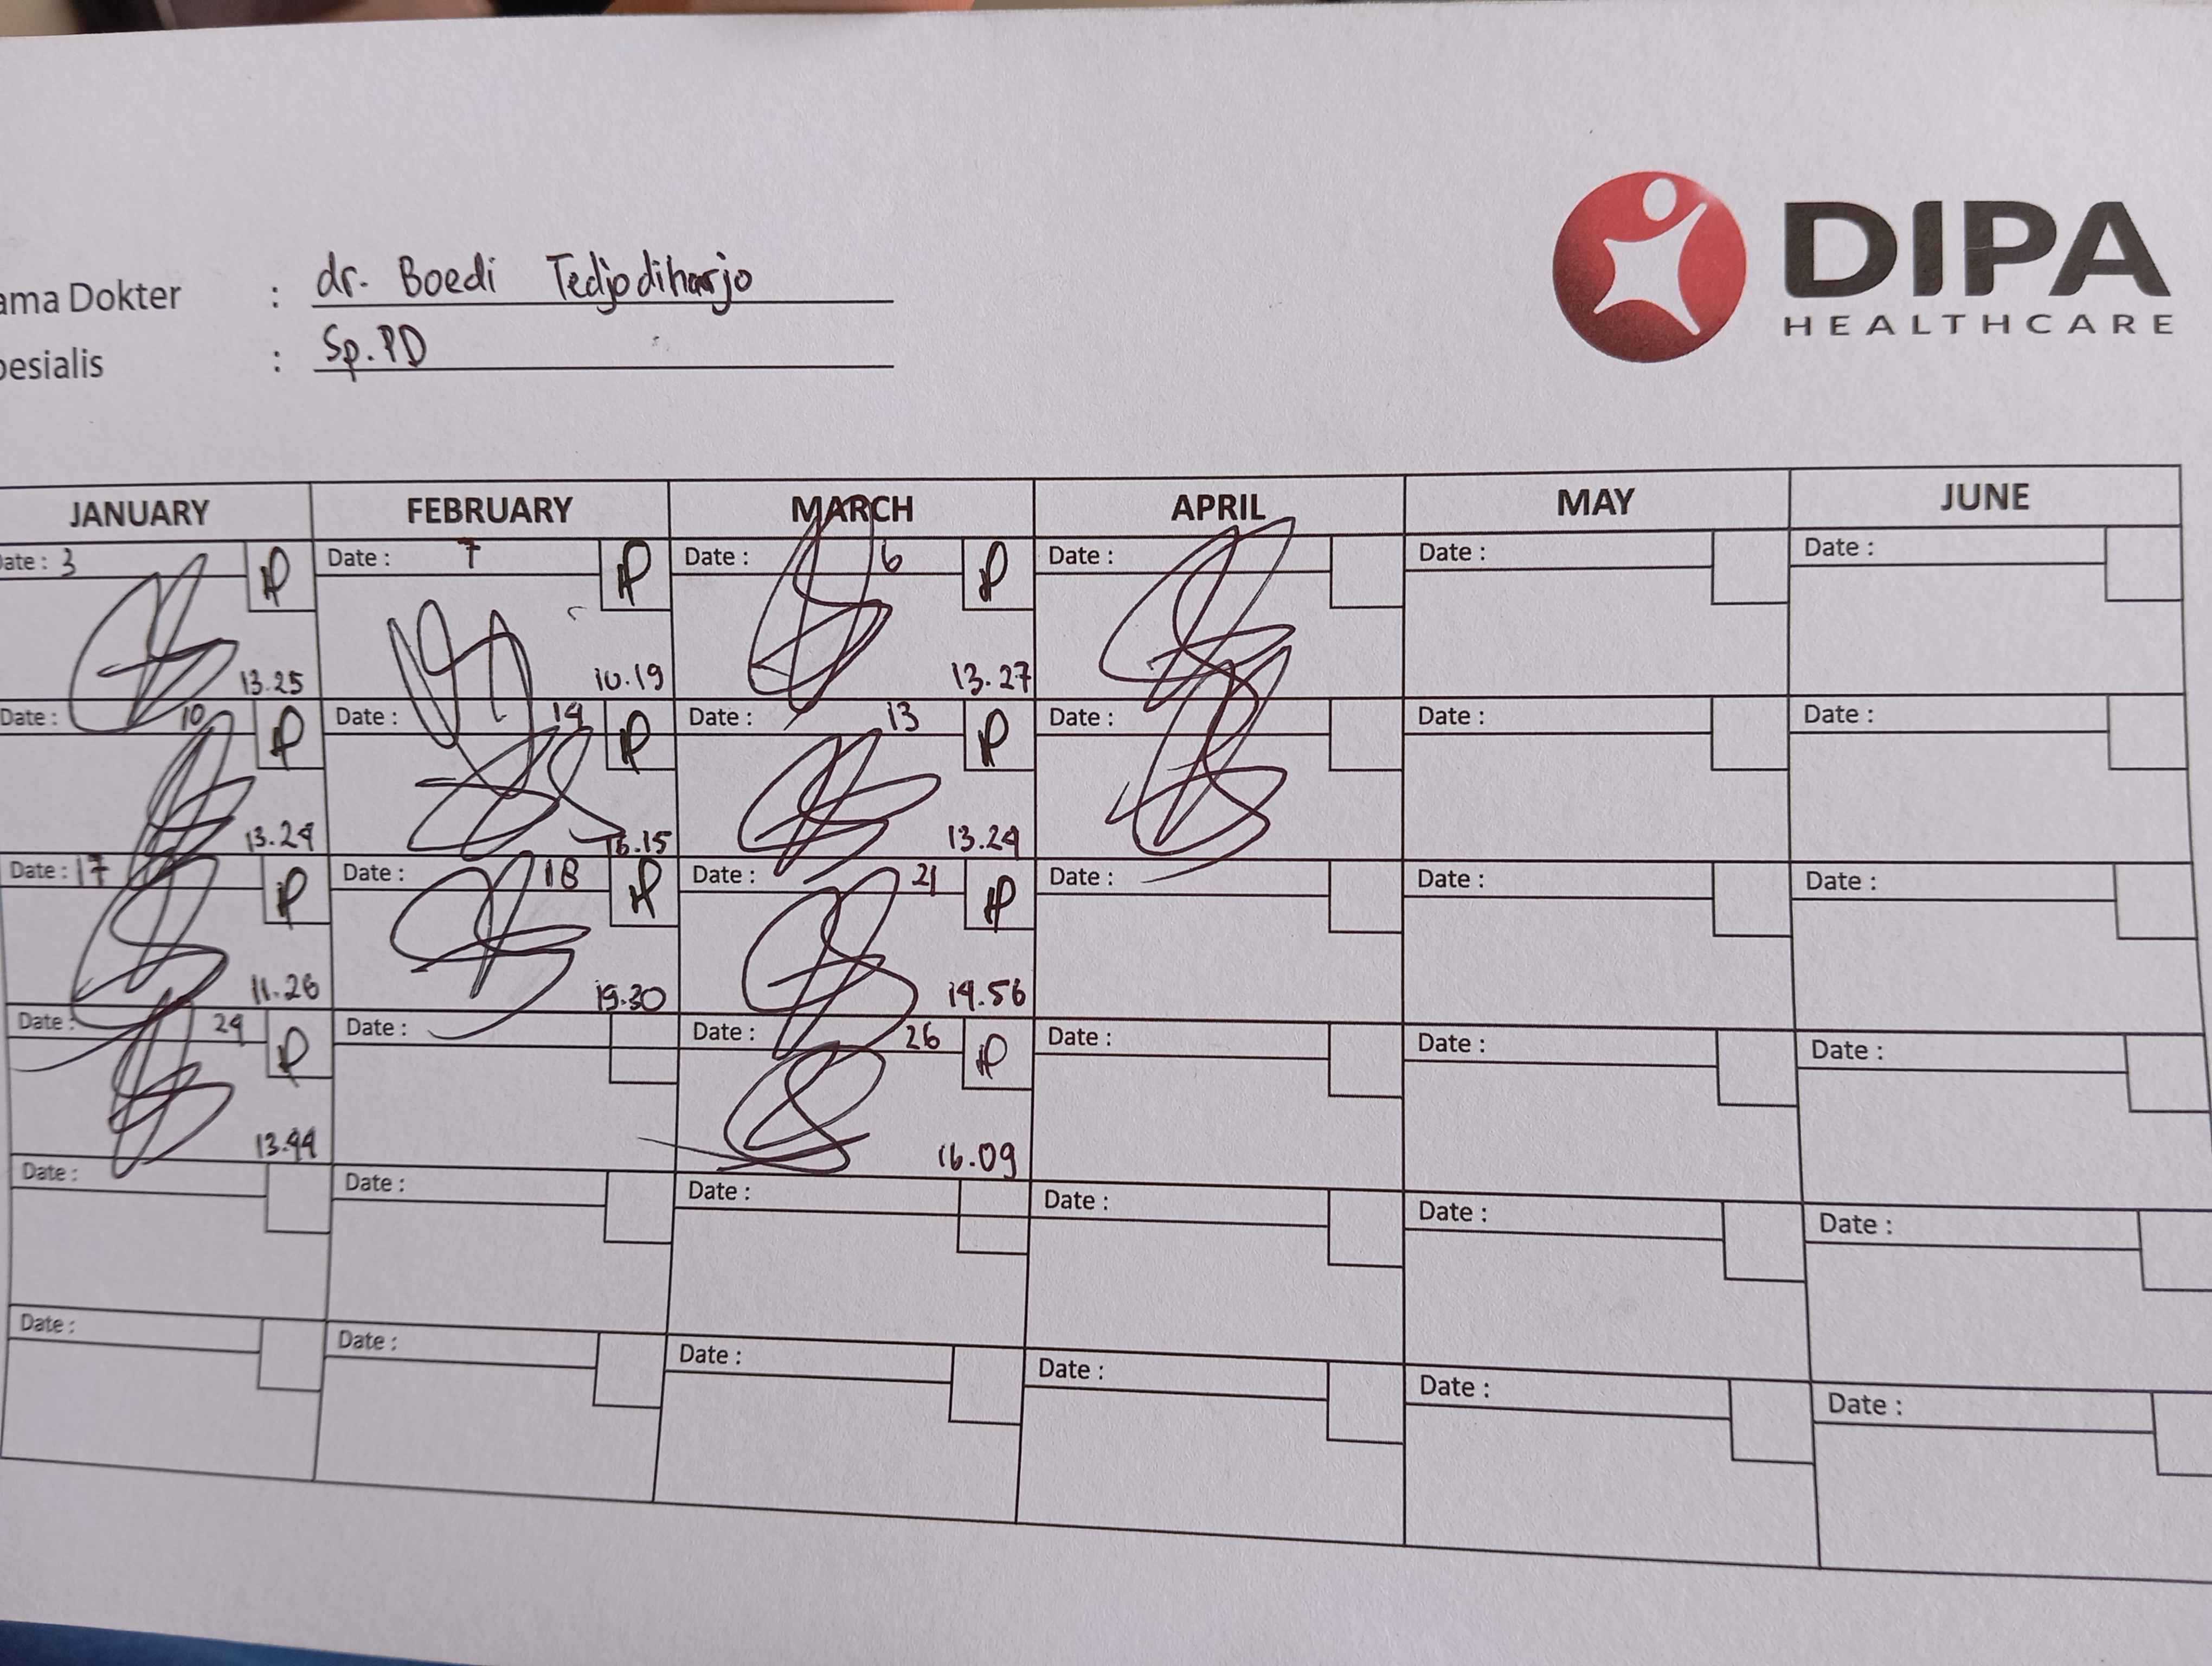 DIPA
HEALTHCARE
ama Dokter : dr. Boedi Tedjodiharjo
pesialis : Sp.PD
JANUARY FEBRUARY MARCH APRIL MAY JUNE
Date : 3 Date : 7 Date : 6 Date : Date : Date :
13.25 10.19 13.27
Date : 10 Date : 14 Date : 13 Date : Date : Date :
13.24 16.15 13.24
Date : 17 Date : 18 Date : 21 Date : Date : Date :
11.26 19.30 14.56
Date : 24 Date : Date : 26 Date : Date : Date :
13.44 16.09
Date : Date : Date : Date : Date : Date :
Date : Date : Date : Date : Date : Date :